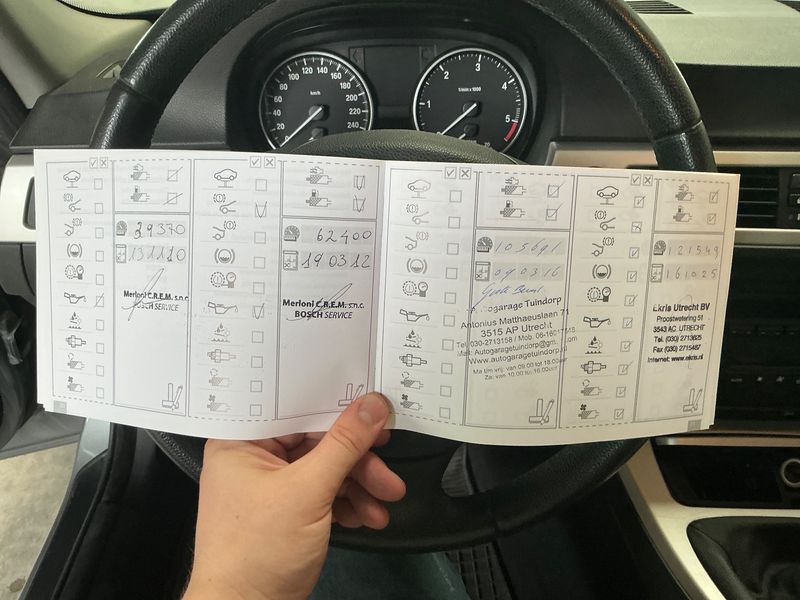 20 40 60 80 100 120 140 160 180 200 220 240
km/h
1 2 3 4 5
1/min x 1000
39370
131110
Merloni C.R.E.M. s.n.c.
BOSCH SERVICE
62400
190312
Merloni C.R.E.M. s.n.c.
BOSCH SERVICE
105691
090316
Autogarage Tuindorp
Antonius Matthaeuslaan 71
3515 AP Utrecht
Tel. 030-2713158 / Mob. 06-16017
Mail: Autogaragetuindorp@gm
Www.autogaragetuindorp.nl
Ma t/m vrij: van 08.00 tot 18.00uur
Za: van 10.00 tot 16.00uur
121549
161025
Ekris Utrecht BV
Proostwetering 51
3543 AC UTRECHT
Tel. (030) 2713625
Fax (030) 2715487
Internet: www.ekris.nl